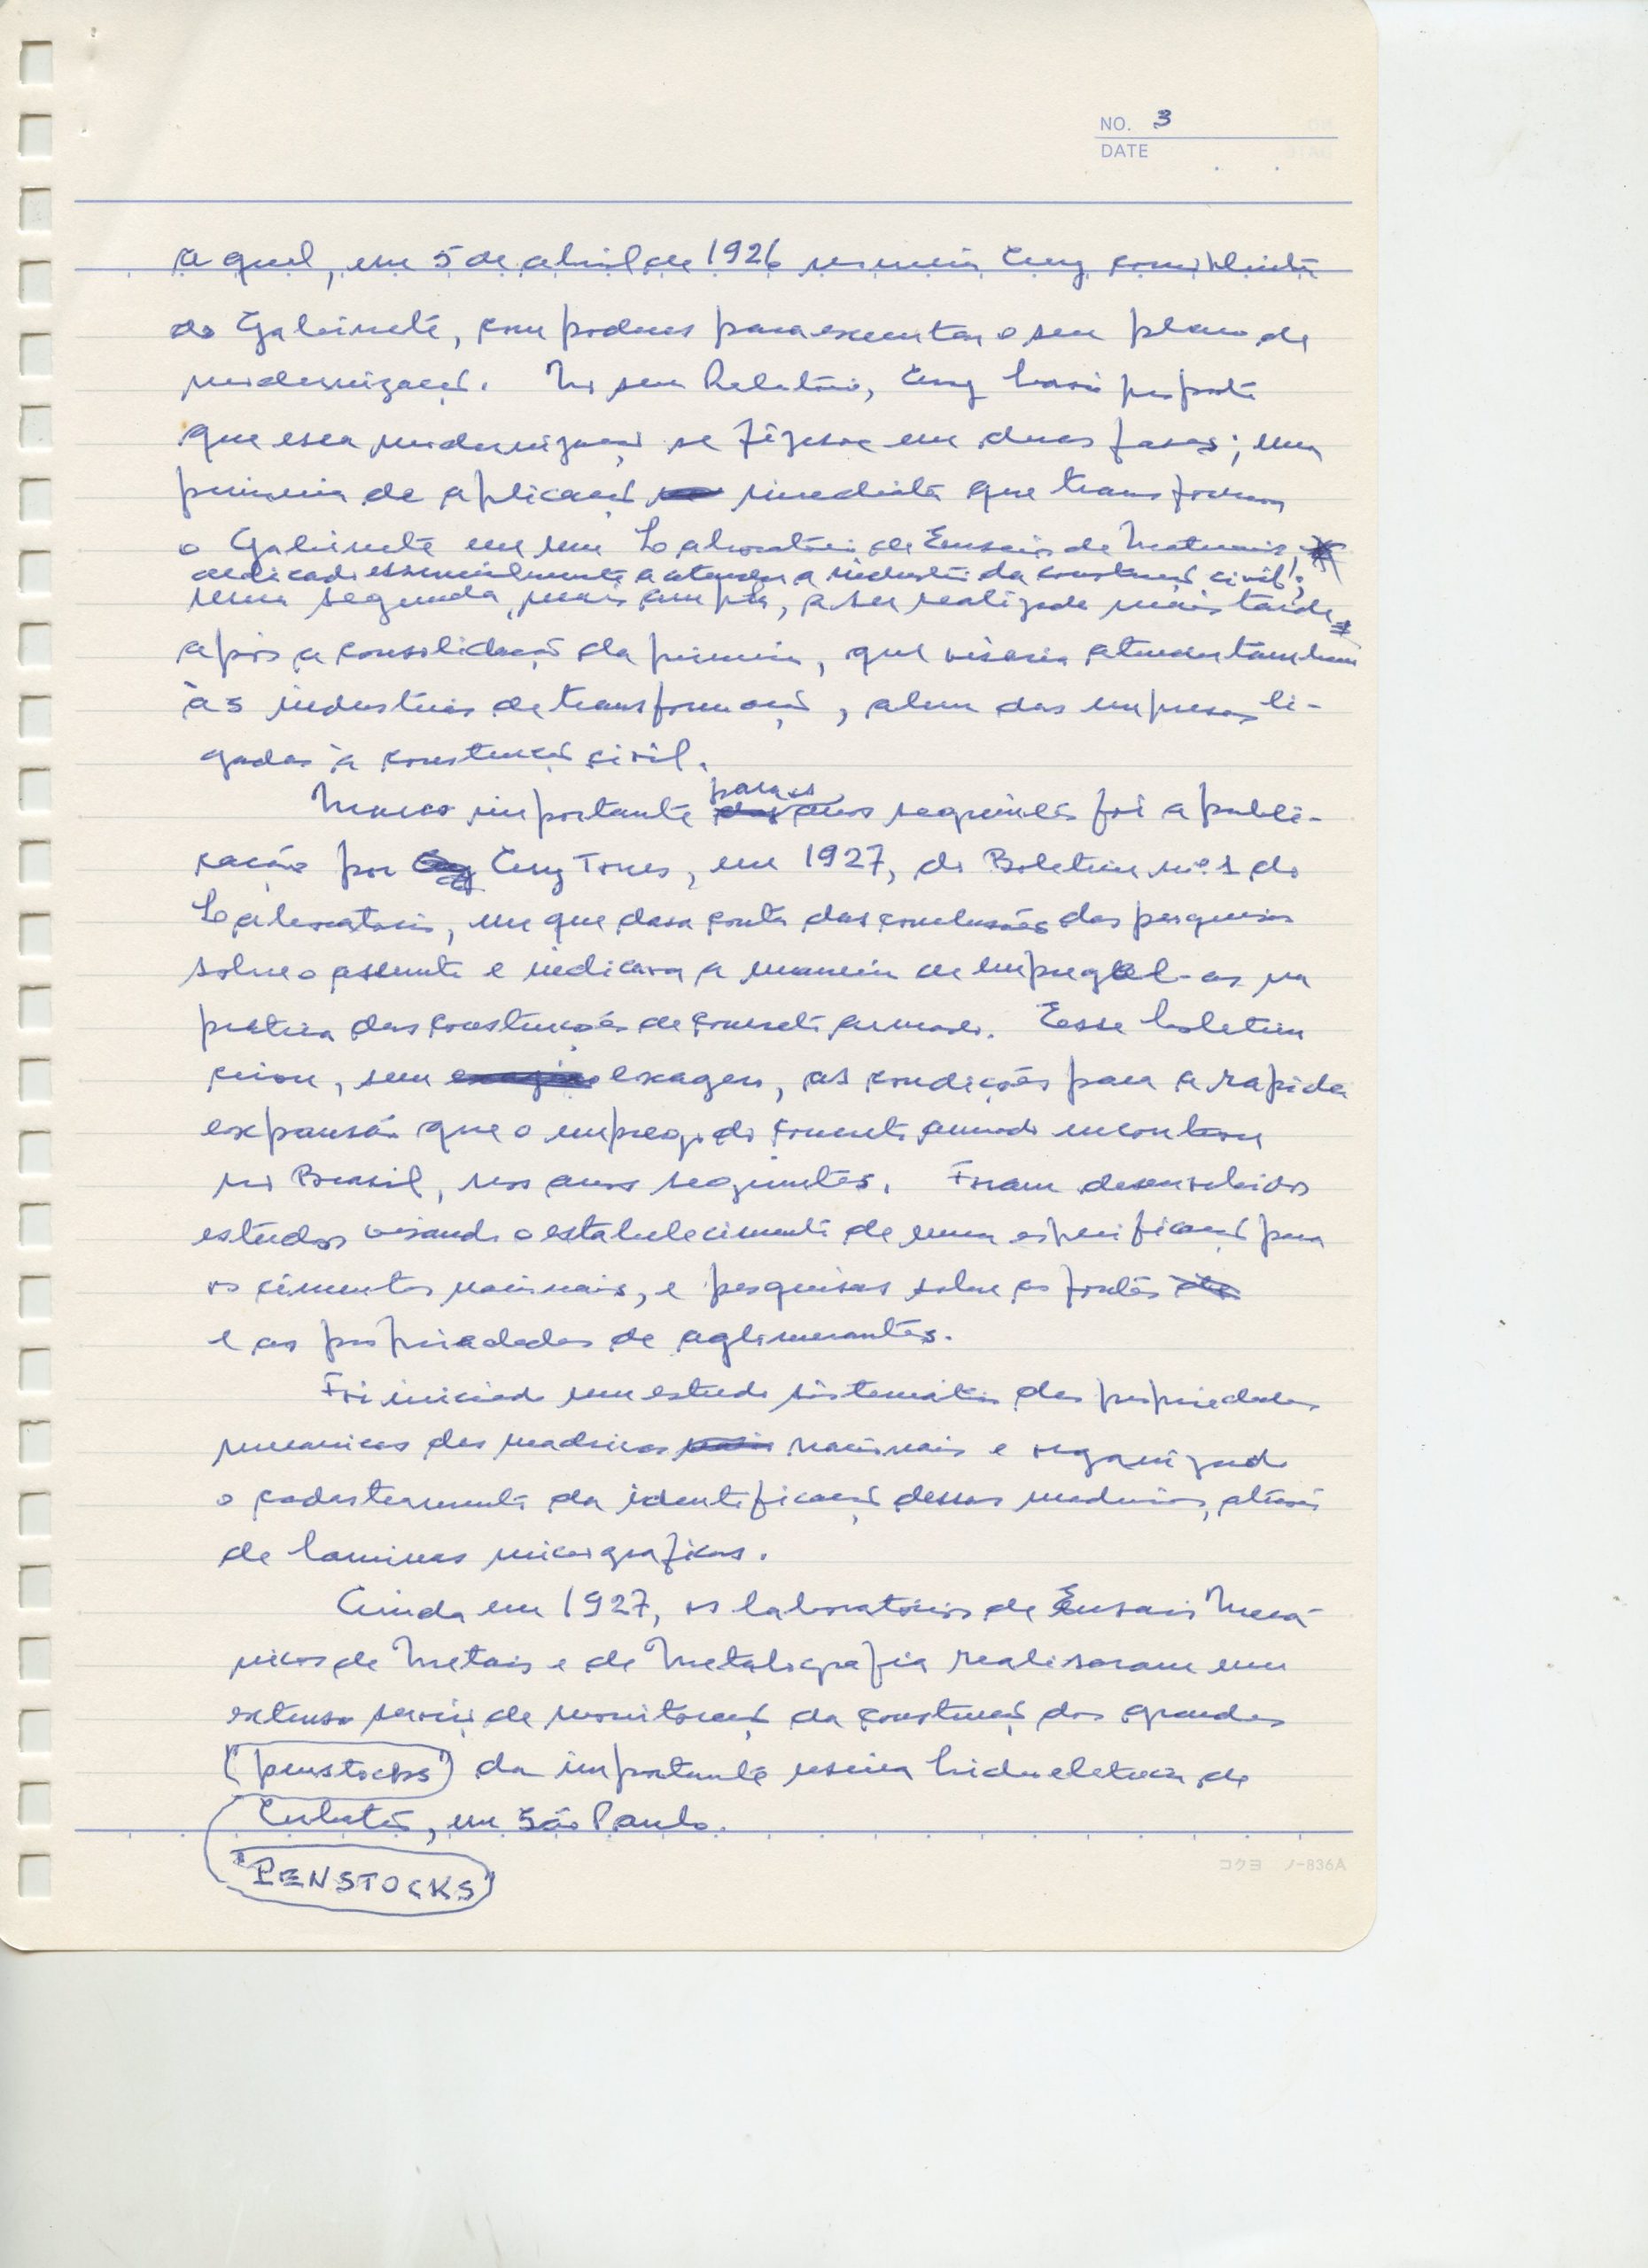 NO. 3
DATE
a qual, em 5 de abril de 1926 nomeia Ary como Diretor
do Gabinete, com poderes para executar o seu plano de
modernização. No seu Relatório, Ary havia proposto
que essa modernização se fizesse em duas fases; uma
primeira de aplicação imediata que transformou
o Gabinete em um Laboratório de Ensaios de Materiais,
dedicado essencialmente a atender a industria da construção civil;
uma segunda, mais ampla, a ser realizada mais tarde
após a consolidação da primeira, que visaria atender tambem
às industrias de transformação, alem das empresas li-
gadas à construção civil.
para os
Marco importante anos seguintes foi a publi-
cação por Ary Torres, em 1927, do Boletim nº 1 do
Laboratorio, em que dava conta das conclusões das pesquisas
sobre o assunto e indicava a maneira de empregal-as na
pratica das construções de concreto armado. Esse boletim
criou, sem exagero, as condições para a rapida
expansão que o emprego do concreto armado encontrou
no Brasil, nos anos seguintes. Foram desenvolvidos
estudos visando o estabelecimento de uma especificação para
os cimentos nacionais, e pesquisas sobre as fontes
e as propriedades de aglomerantes.
Foi iniciado um estudo sistematico das propriedades
mecanicas das madeiras nacionais e organizado
o cadastramento da identificação dessas madeiras, através
de laminas micrograficas.
Ainda em 1927, os laboratórios de Ensaios Mecâ-
nicos de Metais e de Metalografia realisaram um
extenso serviço de monitoração da construção dos grandes
"penstocks" da importante usina hidroeletrica de
Cubatão, em São Paulo.
"PENSTOCKS"
コクヨ ノ-836A